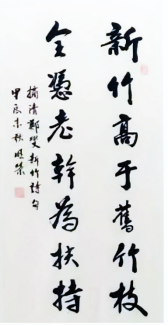 新竹高于舊竹枝
全憑老幹為扶持
摘清鄭燮新竹詩句
甲辰末秋